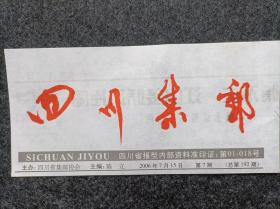 四川集邮
SICHUAN JIYOU 四川省报型内部资料准印证：第01-018号
主办：四川省集邮协会 主编：陈 立 2006年7月15日 第7期 （总第192期）